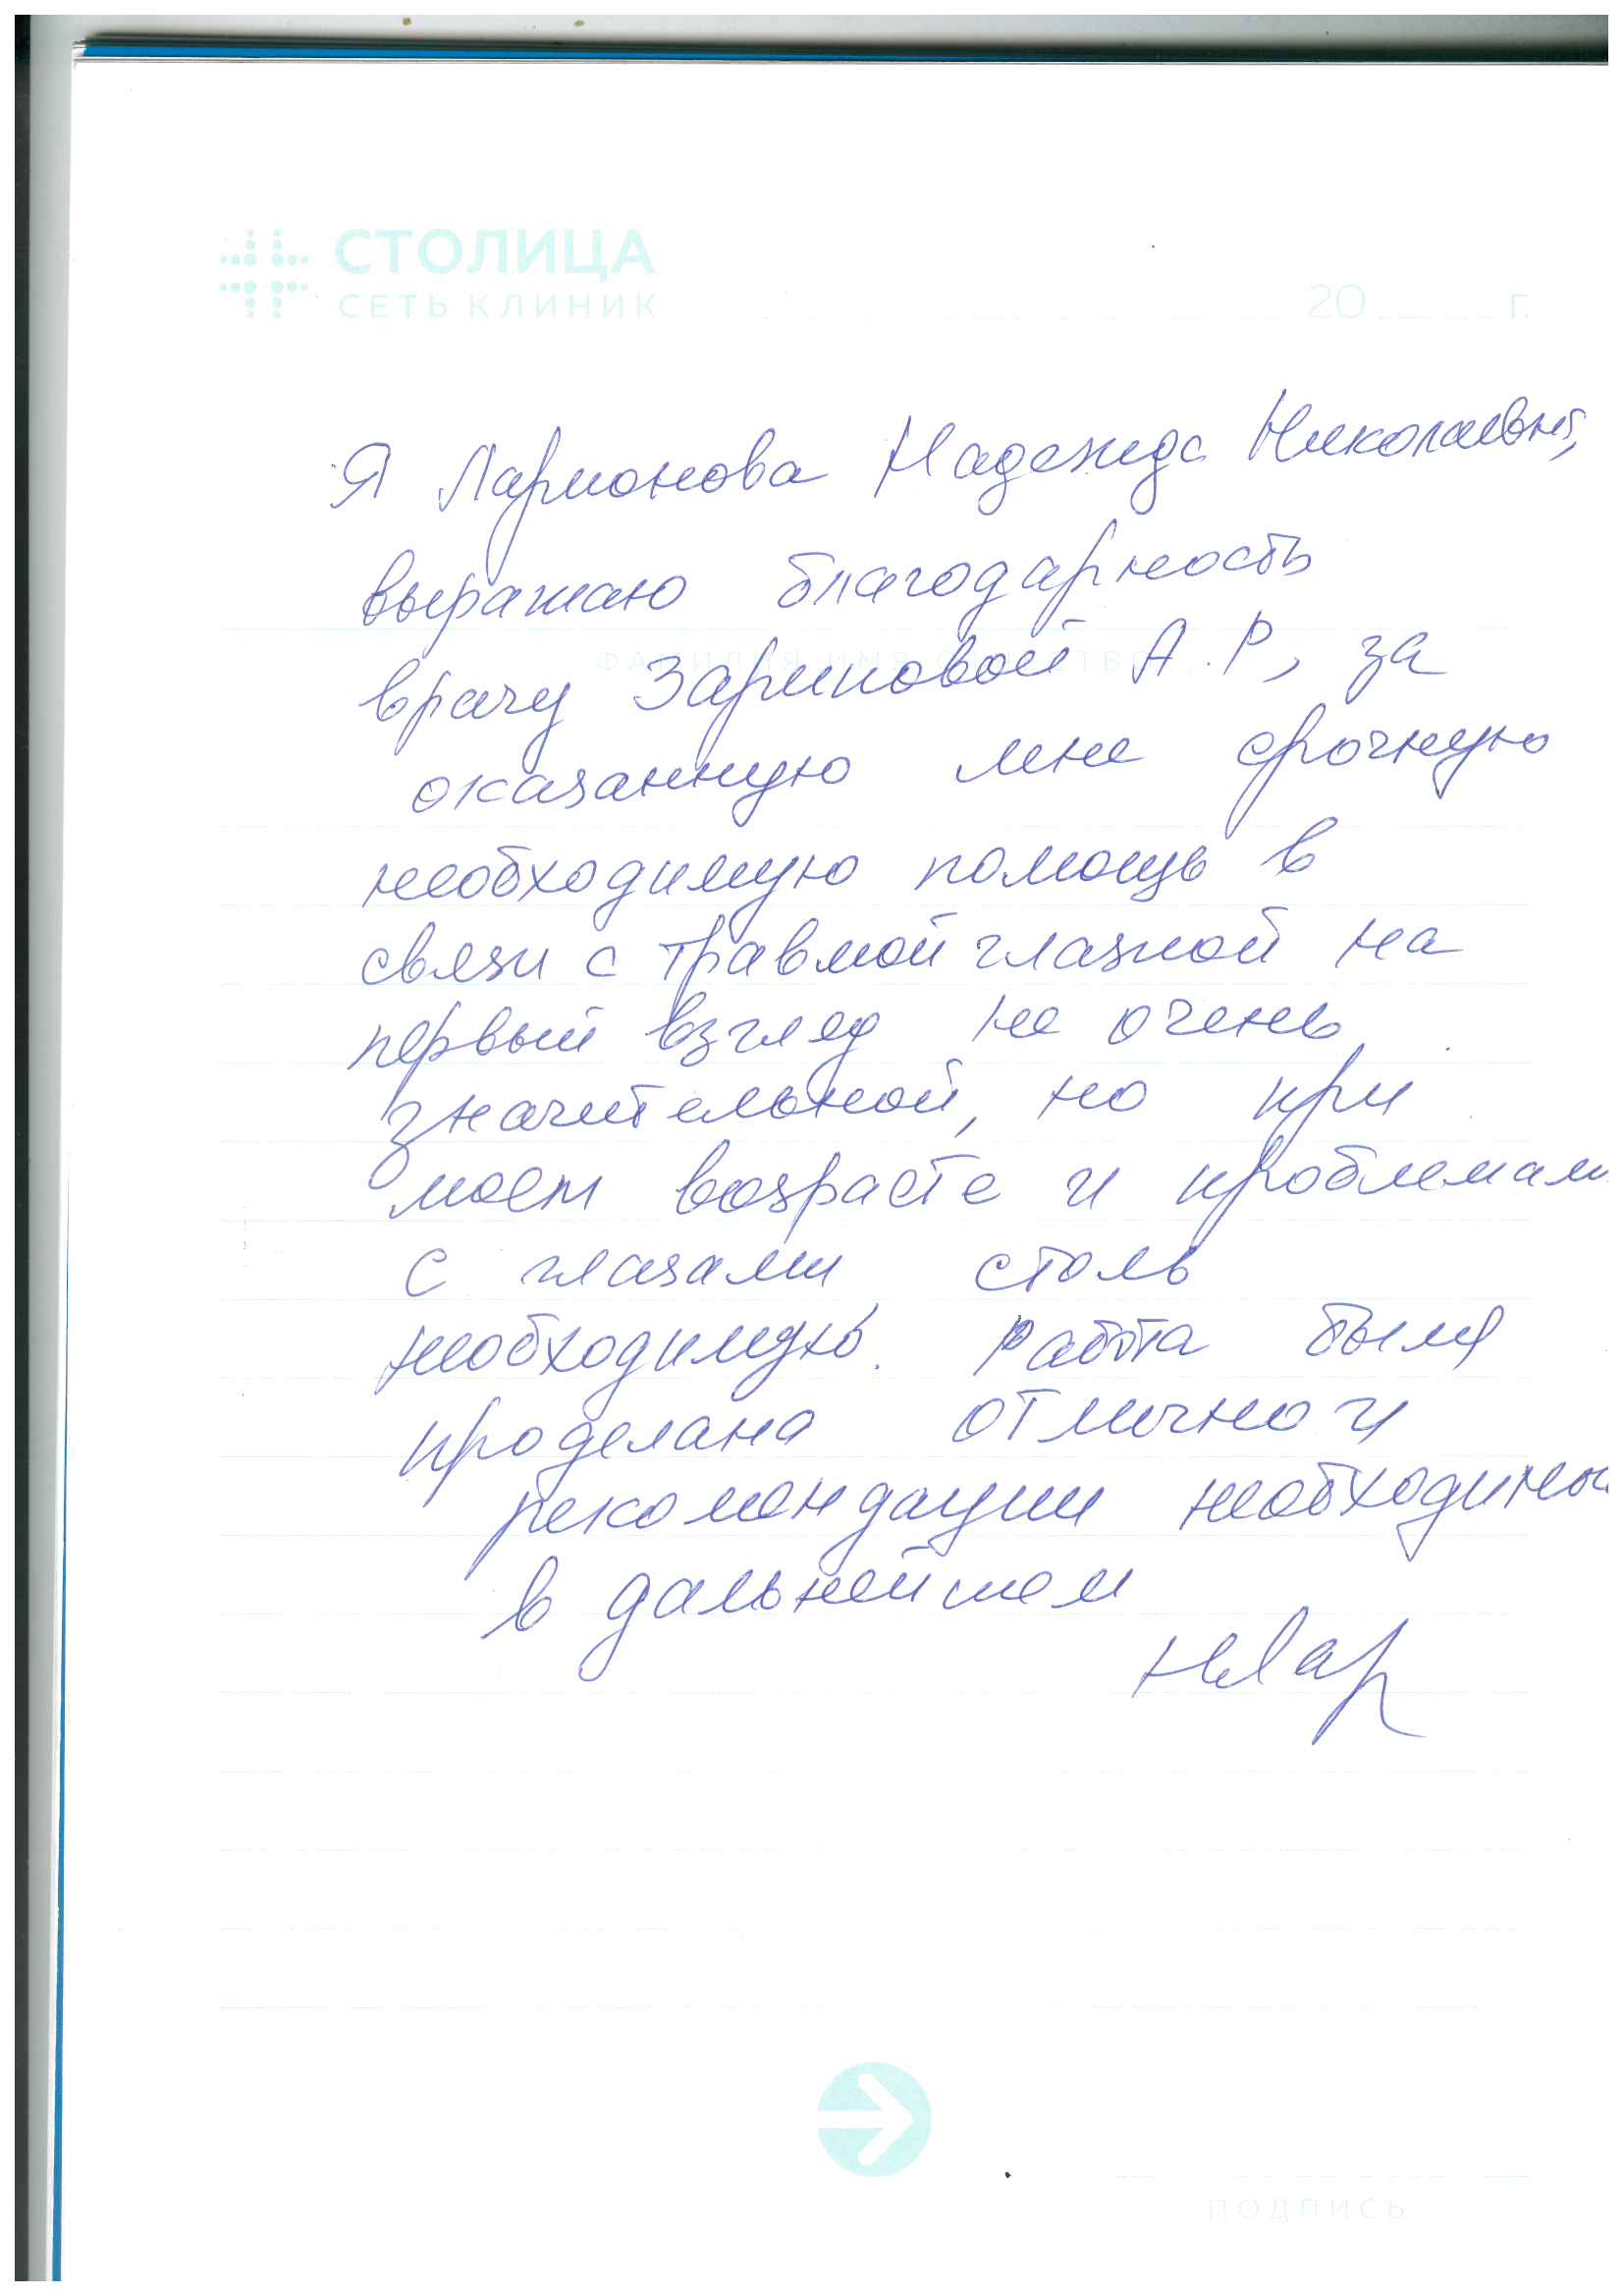 СТОЛИЦА
СЕТЬ КЛИНИК
20 г.
Я Ларионова Надежда Николаевна,
выражаю благодарность
ФАМИЛИЯ ИМЯ ОТЧЕСТВО
врачу Зариповой А.Р, за
оказанную мне срочную
необходимую помощь в
связи с травмой глазной на
первый взгляд не очень
значительной, но при
моем возрасте и проблемам
с глазами столь
необходимую. Работа была
проделана отлично и
рекомендации необходимы
в дальнейшем
НЛар
ПОДПИСЬ